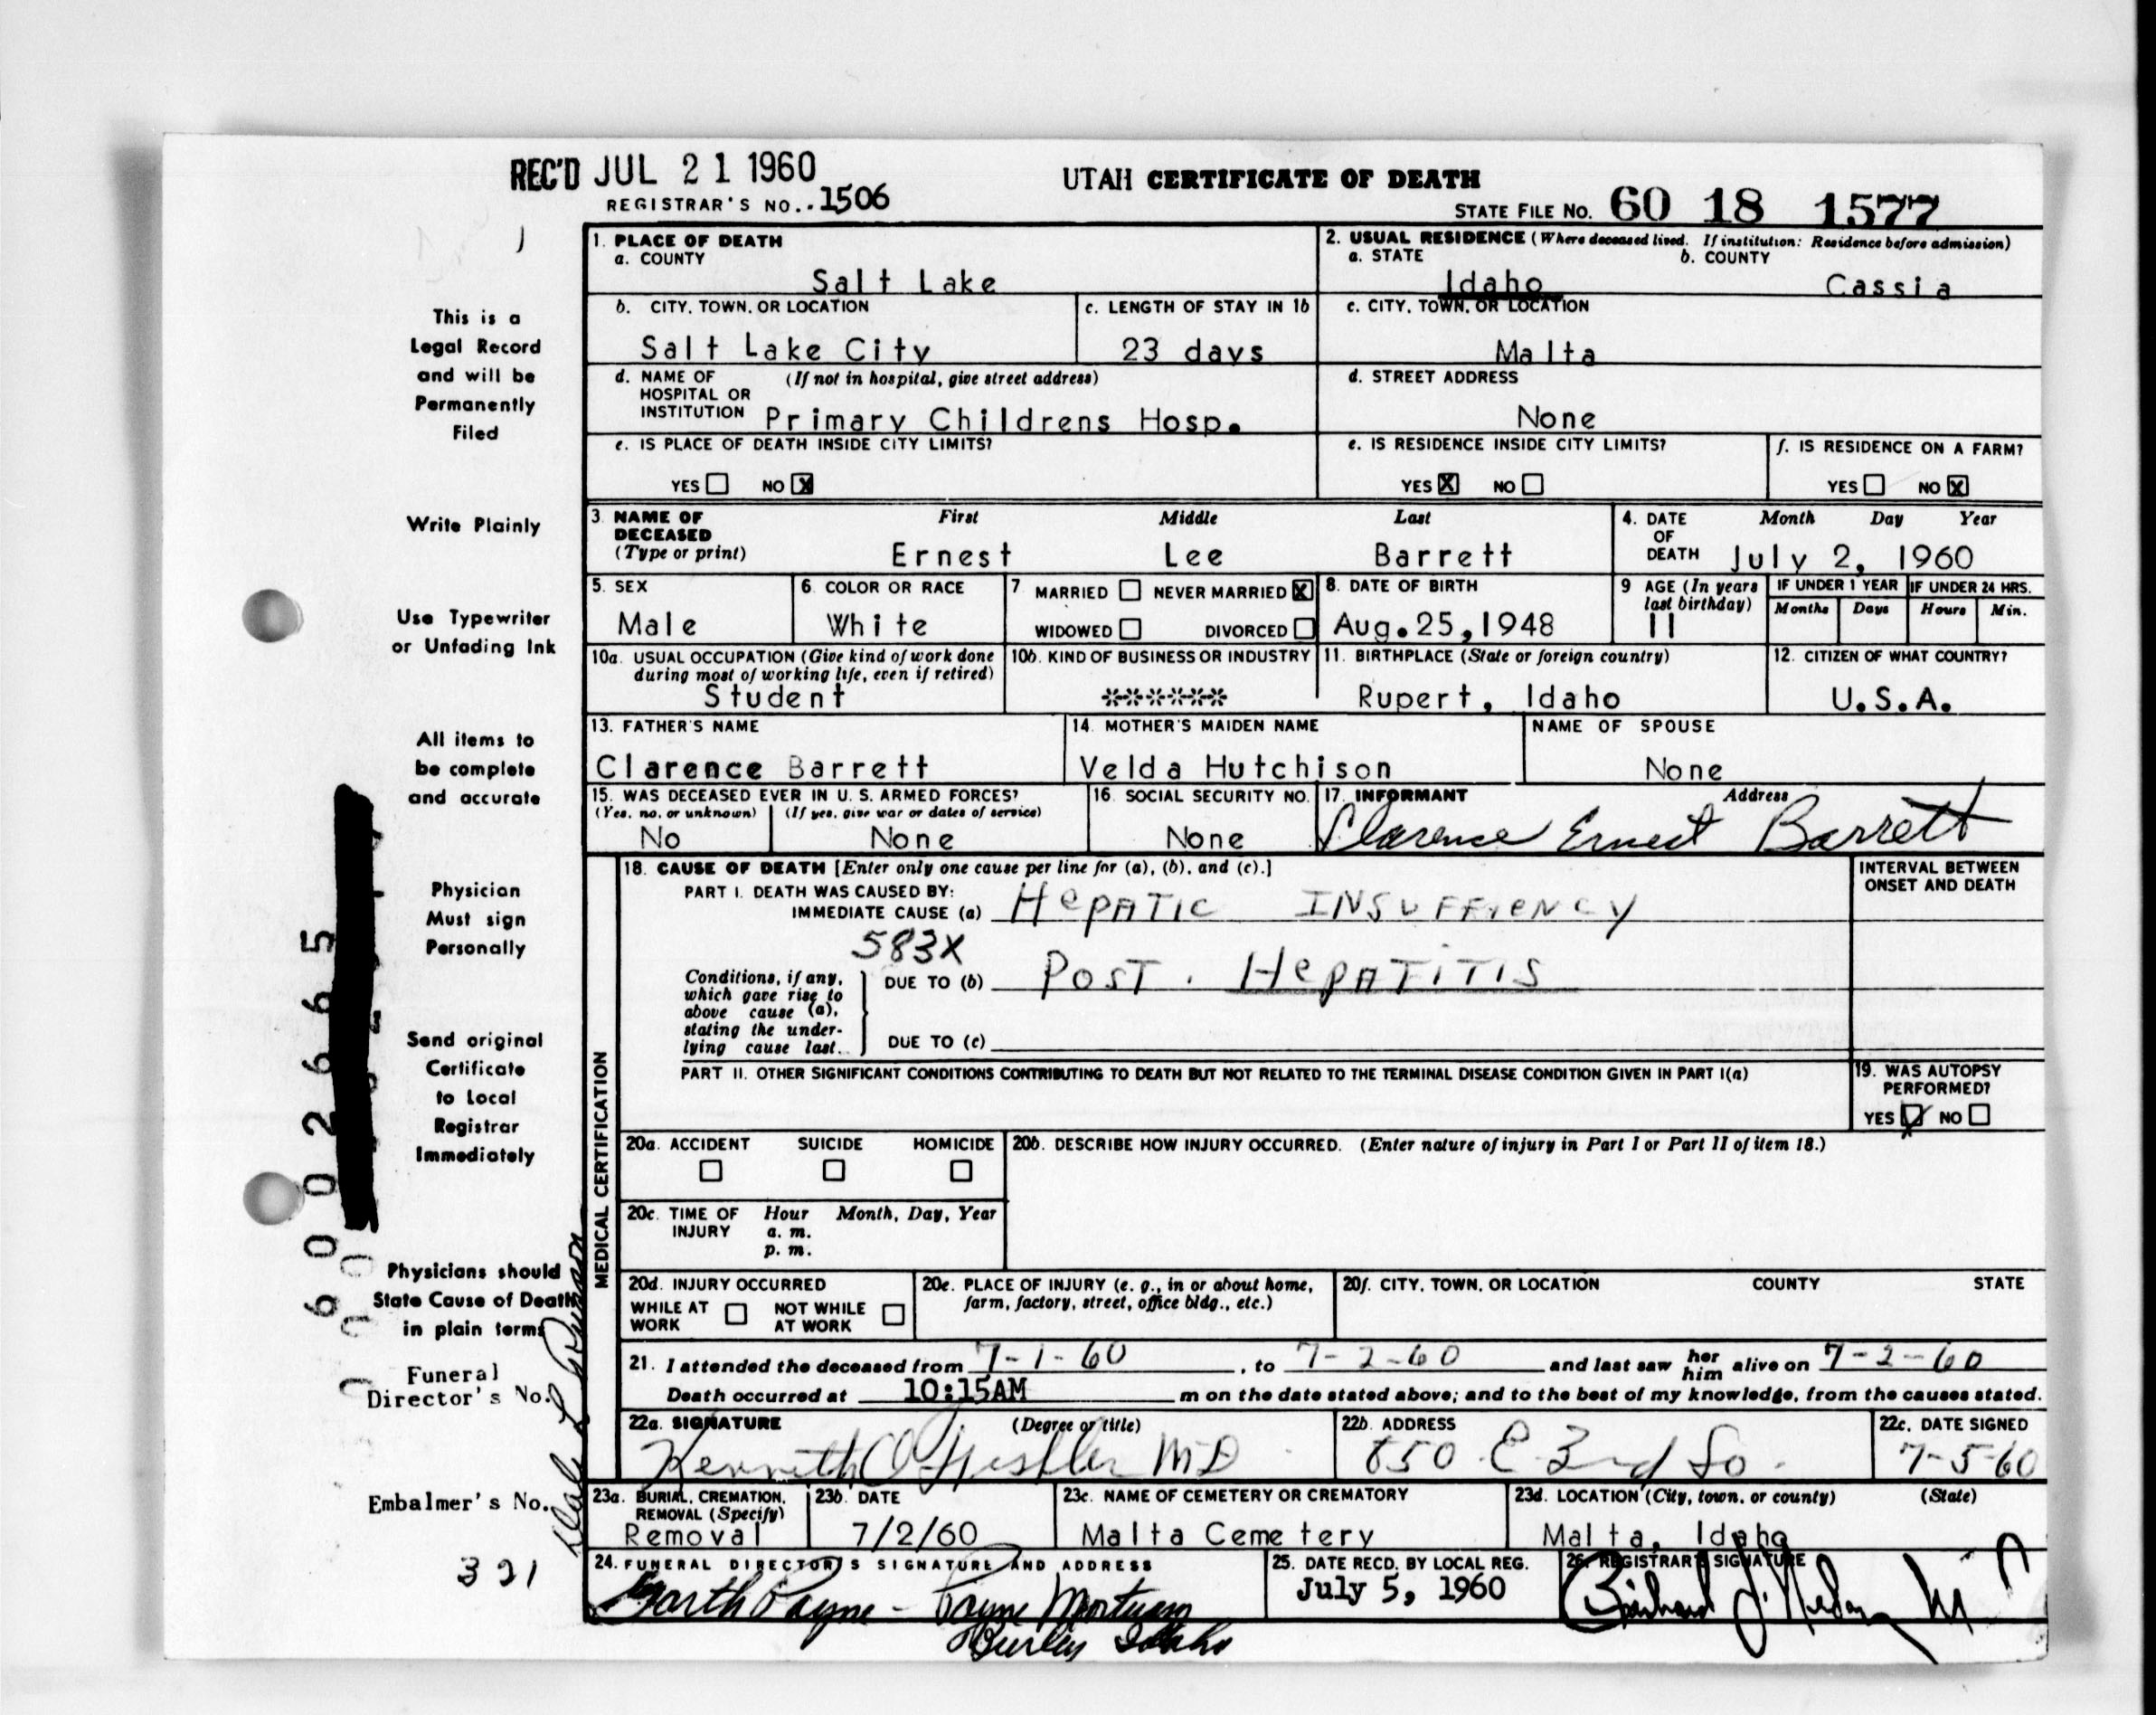 REC'D JUL 21 1960
REGISTRAR'S NO. . 1506
UTAH CERTIFICATE OF DEATH
STATE FILE NO. 60 18 1577
This is a
Legal Record
and will be
Permanently
Filed
Write Plainly
Use Typewriter
or Unfading Ink
All items to
be complete
and accurate
Physician
Must sign
Personally
Send original
Certificate
to Local
Registrar
Immediately
Physicians should
State Cause of Death
in plain terms
Funeral
Director's No.
Embalmer's No.
321
60 02665
1. PLACE OF DEATH
a. COUNTY
Salt Lake
b. CITY, TOWN, OR LOCATION
Salt Lake City
c. LENGTH OF STAY IN 1b
23 days
d. NAME OF (If not in hospital, give street address)
HOSPITAL OR
INSTITUTION Primary Childrens Hosp.
e. IS PLACE OF DEATH INSIDE CITY LIMITS?
YES NO X
2. USUAL RESIDENCE (Where deceased lived. If institution: Residence before admission)
a. STATE b. COUNTY
Idaho Cassia
c. CITY, TOWN, OR LOCATION
Malta
d. STREET ADDRESS
None
e. IS RESIDENCE INSIDE CITY LIMITS?
YES X NO
f. IS RESIDENCE ON A FARM?
YES NO X
3. NAME OF DECEASED (Type or print)
First Middle Last
Ernest Lee Barrett
4. DATE OF DEATH Month Day Year
July 2, 1960
5. SEX
Male
6. COLOR OR RACE
White
7 MARRIED NEVER MARRIED X
WIDOWED DIVORCED
8. DATE OF BIRTH
Aug. 25, 1948
9 AGE (In years last birthday)
11
IF UNDER 1 YEAR IF UNDER 24 HRS.
Months Days Hours Min.
10a. USUAL OCCUPATION (Give kind of work done
during most of working life, even if retired)
Student
10b. KIND OF BUSINESS OR INDUSTRY
******
11. BIRTHPLACE (State or foreign country)
Rupert, Idaho
12. CITIZEN OF WHAT COUNTRY?
U.S.A.
13. FATHER'S NAME
Clarence Barrett
14. MOTHER'S MAIDEN NAME
Velda Hutchison
NAME OF SPOUSE
None
15. WAS DECEASED EVER IN U. S. ARMED FORCES?
(Yes, no, or unknown) (If yes, give war or dates of service)
No None
16. SOCIAL SECURITY NO.
None
17. INFORMANT Address
Clarence Ernest Barrett
MEDICAL CERTIFICATION
18. CAUSE OF DEATH [Enter only one cause per line for (a), (b), and (c).]
PART I. DEATH WAS CAUSED BY:
IMMEDIATE CAUSE (a) Hepatic INSUFFIENCY
583X
Conditions, if any,
which gave rise to
above cause (a),
stating the under-
lying cause last.
DUE TO (b) Post. Hepatitis
DUE TO (c)
INTERVAL BETWEEN
ONSET AND DEATH
PART II. OTHER SIGNIFICANT CONDITIONS CONTRIBUTING TO DEATH BUT NOT RELATED TO THE TERMINAL DISEASE CONDITION GIVEN IN PART I(a)
19. WAS AUTOPSY
PERFORMED?
YES X NO
20a. ACCIDENT SUICIDE HOMICIDE
20b. DESCRIBE HOW INJURY OCCURRED. (Enter nature of injury in Part I or Part II of item 18.)
20c. TIME OF INJURY Hour Month, Day, Year
a. m.
p. m.
20d. INJURY OCCURRED
WHILE AT WORK NOT WHILE AT WORK
20e. PLACE OF INJURY (e. g., in or about home,
farm, factory, street, office bldg., etc.)
20f. CITY, TOWN, OR LOCATION COUNTY STATE
21. I attended the deceased from 7-1-60, to 7-2-60 and last saw her him alive on 7-2-60
Death occurred at 10:15AM m on the date stated above; and to the best of my knowledge, from the causes stated.
22a. SIGNATURE (Degree or title)
Kenneth MD
22b. ADDRESS
850 E 3rd So.
22c. DATE SIGNED
7-5-60
23a. BURIAL, CREMATION,
REMOVAL (Specify)
Removal
23b. DATE
7/2/60
23c. NAME OF CEMETERY OR CREMATORY
Malta Cemetery
23d. LOCATION (City, town, or county) (State)
Malta, Idaho
24. FUNERAL DIRECTOR'S SIGNATURE AND ADDRESS
Garth Payne - Payne Mortuary
Burley Idaho
25. DATE RECD. BY LOCAL REG.
July 5, 1960
26. REGISTRAR'S SIGNATURE